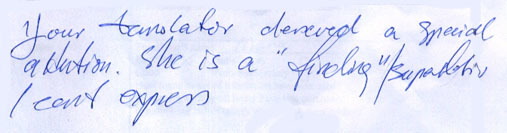 Your translator deserved a special
attention. She is a "finding"/superlativ
I cant express